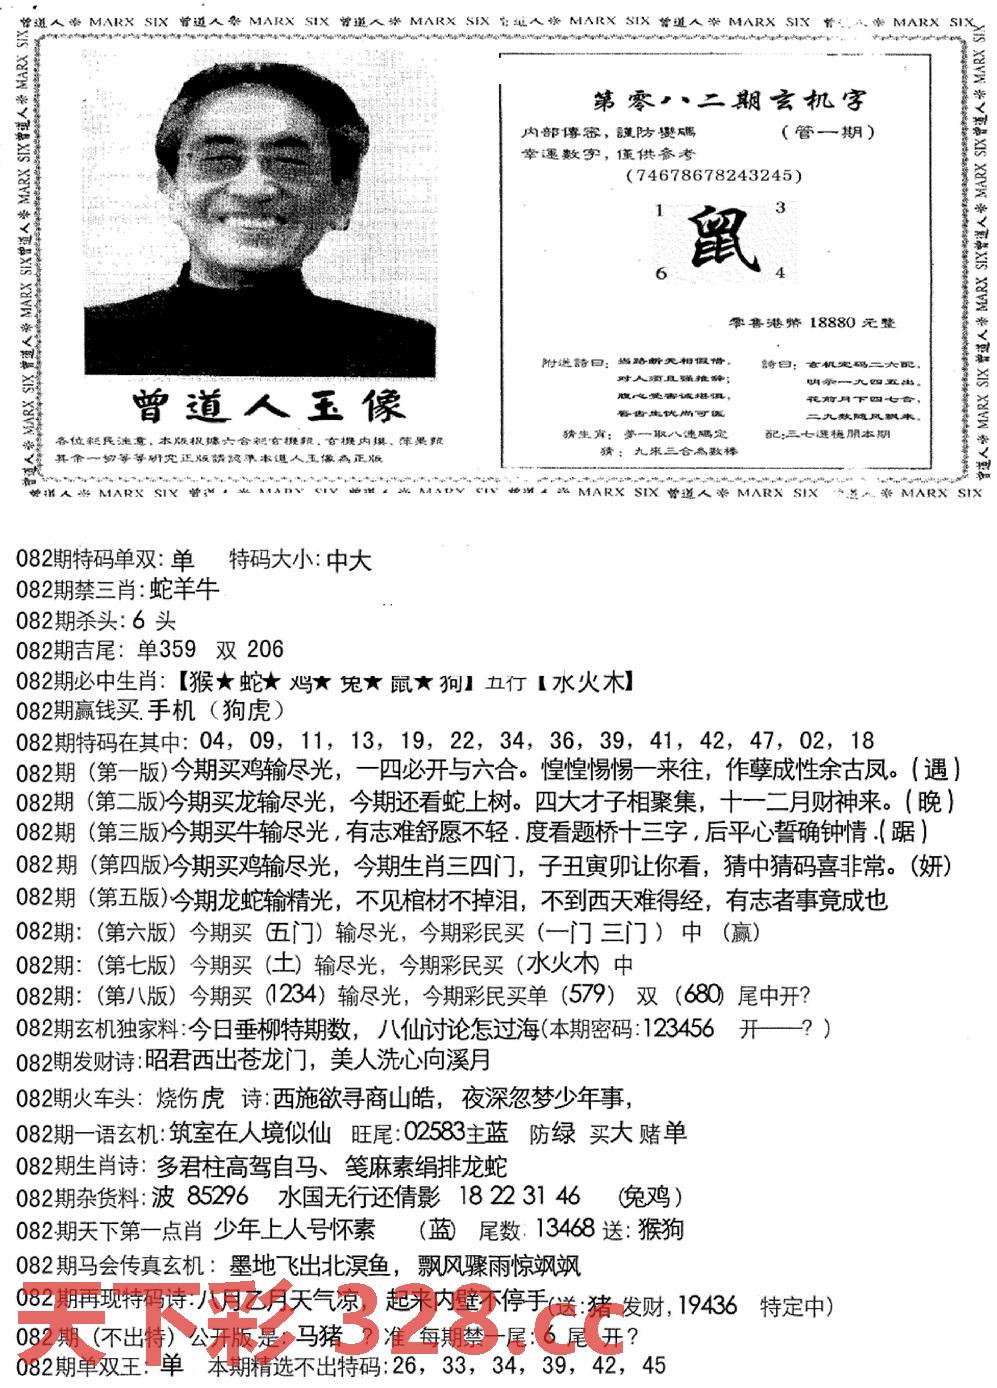 曾道人※ MARX SIX 曾道人※ MARX SIX 曾道人※ MARX SIX 曾道人※ MARX SIX 曾道人※ MARX SIX 曾道人※ MARX SIX
第零八二期玄机字
内部傳密，謹防變碼 （管一期）
幸運數字，僅供參考
(74678678243245)
1 3
鼠
6 4
零售港幣 18880 元整
附送詩曰：当路斩天相假惜，
对人须且强推辞；
腹心受害诚堪惧，
唇齿生忧尚可医
詩曰：玄机定码二六配，
明示一九四五出，
花前月下四七合，
二九数随风飘来。
猜生肖：夢一取八連碼定 配：三七選穩開本期
猜：九来三合為數棒
曾道人玉像
各位彩民注意，本版根據六合彩玄機報、玄機内摸、蘋果報
其余一切等等研究正版請認準本道人玉像為正版
曾道人※ MARX SIX 曾道人※ MARX SIX 曾道人※ MARX SIX 曾道人※ MARX SIX 曾道人※ MARX SIX 曾道人※ MARX SIX
082期特码单双: 单 特码大小: 中大
082期禁三肖: 蛇羊牛
082期杀头: 6 头
082期吉尾: 单359 双 206
082期必中生肖:【猴★蛇★鸡★兔★鼠★狗】五行【水火木】
082期赢钱买.手机（狗虎）
082期特码在其中: 04, 09, 11, 13, 19, 22, 34, 36, 39, 41, 42, 47, 02, 18
082期（第一版)今期买鸡输尽光，一四必开与六合。惶惶惕惕一来往，作孽成性余古凤。(遇)
082期（第二版)今期买龙输尽光，今期还看蛇上树。四大才子相聚集，十一二月财神来。(晚)
082期（第三版)今期买牛输尽光,有志难舒愿不轻.度看题桥十三字,后平心誓确钟情.(踞)
082期（第四版)今期买鸡输尽光，今期生肖三四门，子丑寅卯让你看，猜中猜码喜非常。(妍)
082期（第五版)今期龙蛇输精光，不见棺材不掉泪，不到西天难得经，有志者事竟成也
082期:（第六版）今期买（五门）输尽光，今期彩民买（一门 三门 ） 中 （赢）
082期:（第七版）今期买（土）输尽光，今期彩民买（水火木）中
082期:（第八版）今期买（1234）输尽光，今期彩民买单（579） 双 （680）尾中开?
082期玄机独家料:今日垂柳特期数，八仙讨论怎过海(本期密码:123456 开——? )
082期发财诗:昭君西出苍龙门，美人洗心向溪月
082期火车头: 烧伤虎 诗:西施欲寻商山皓，夜深忽梦少年事，
082期一语玄机:筑室在人境似仙 旺尾:02583主蓝 防绿 买大 赌单
082期生肖诗: 多君柱高驾自马、笺麻素绢排龙蛇
082期杂货料:波 85296 水国无行还倩影 18 22 31 46 （兔鸡）
082期天下第一点肖 少年上人号怀素 （蓝） 尾数: 13468 送: 猴狗
082期马会传真玄机: 墨地飞出北溟鱼，飘风骤雨惊飒飒
082期再现特码诗:八月乙月天气凉，起来内壁不停手(送:猪 发财,19436 特定中)
082期（不出特）公开版是: 马猪 ? 准 每期禁一尾: 6 尾 开?
082期单双王: 单 本期精选不出特码: 26, 33, 34, 39, 42, 45
天下彩 328.cc